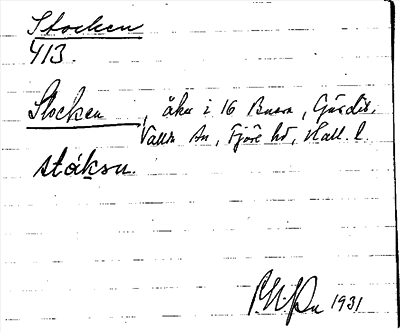 Stocken
413.
Stocken, åker i 16 Buera, Gårdst.
Valldа Sn, Fjäre hd, Hall. l.
stå̀ksn.
1931